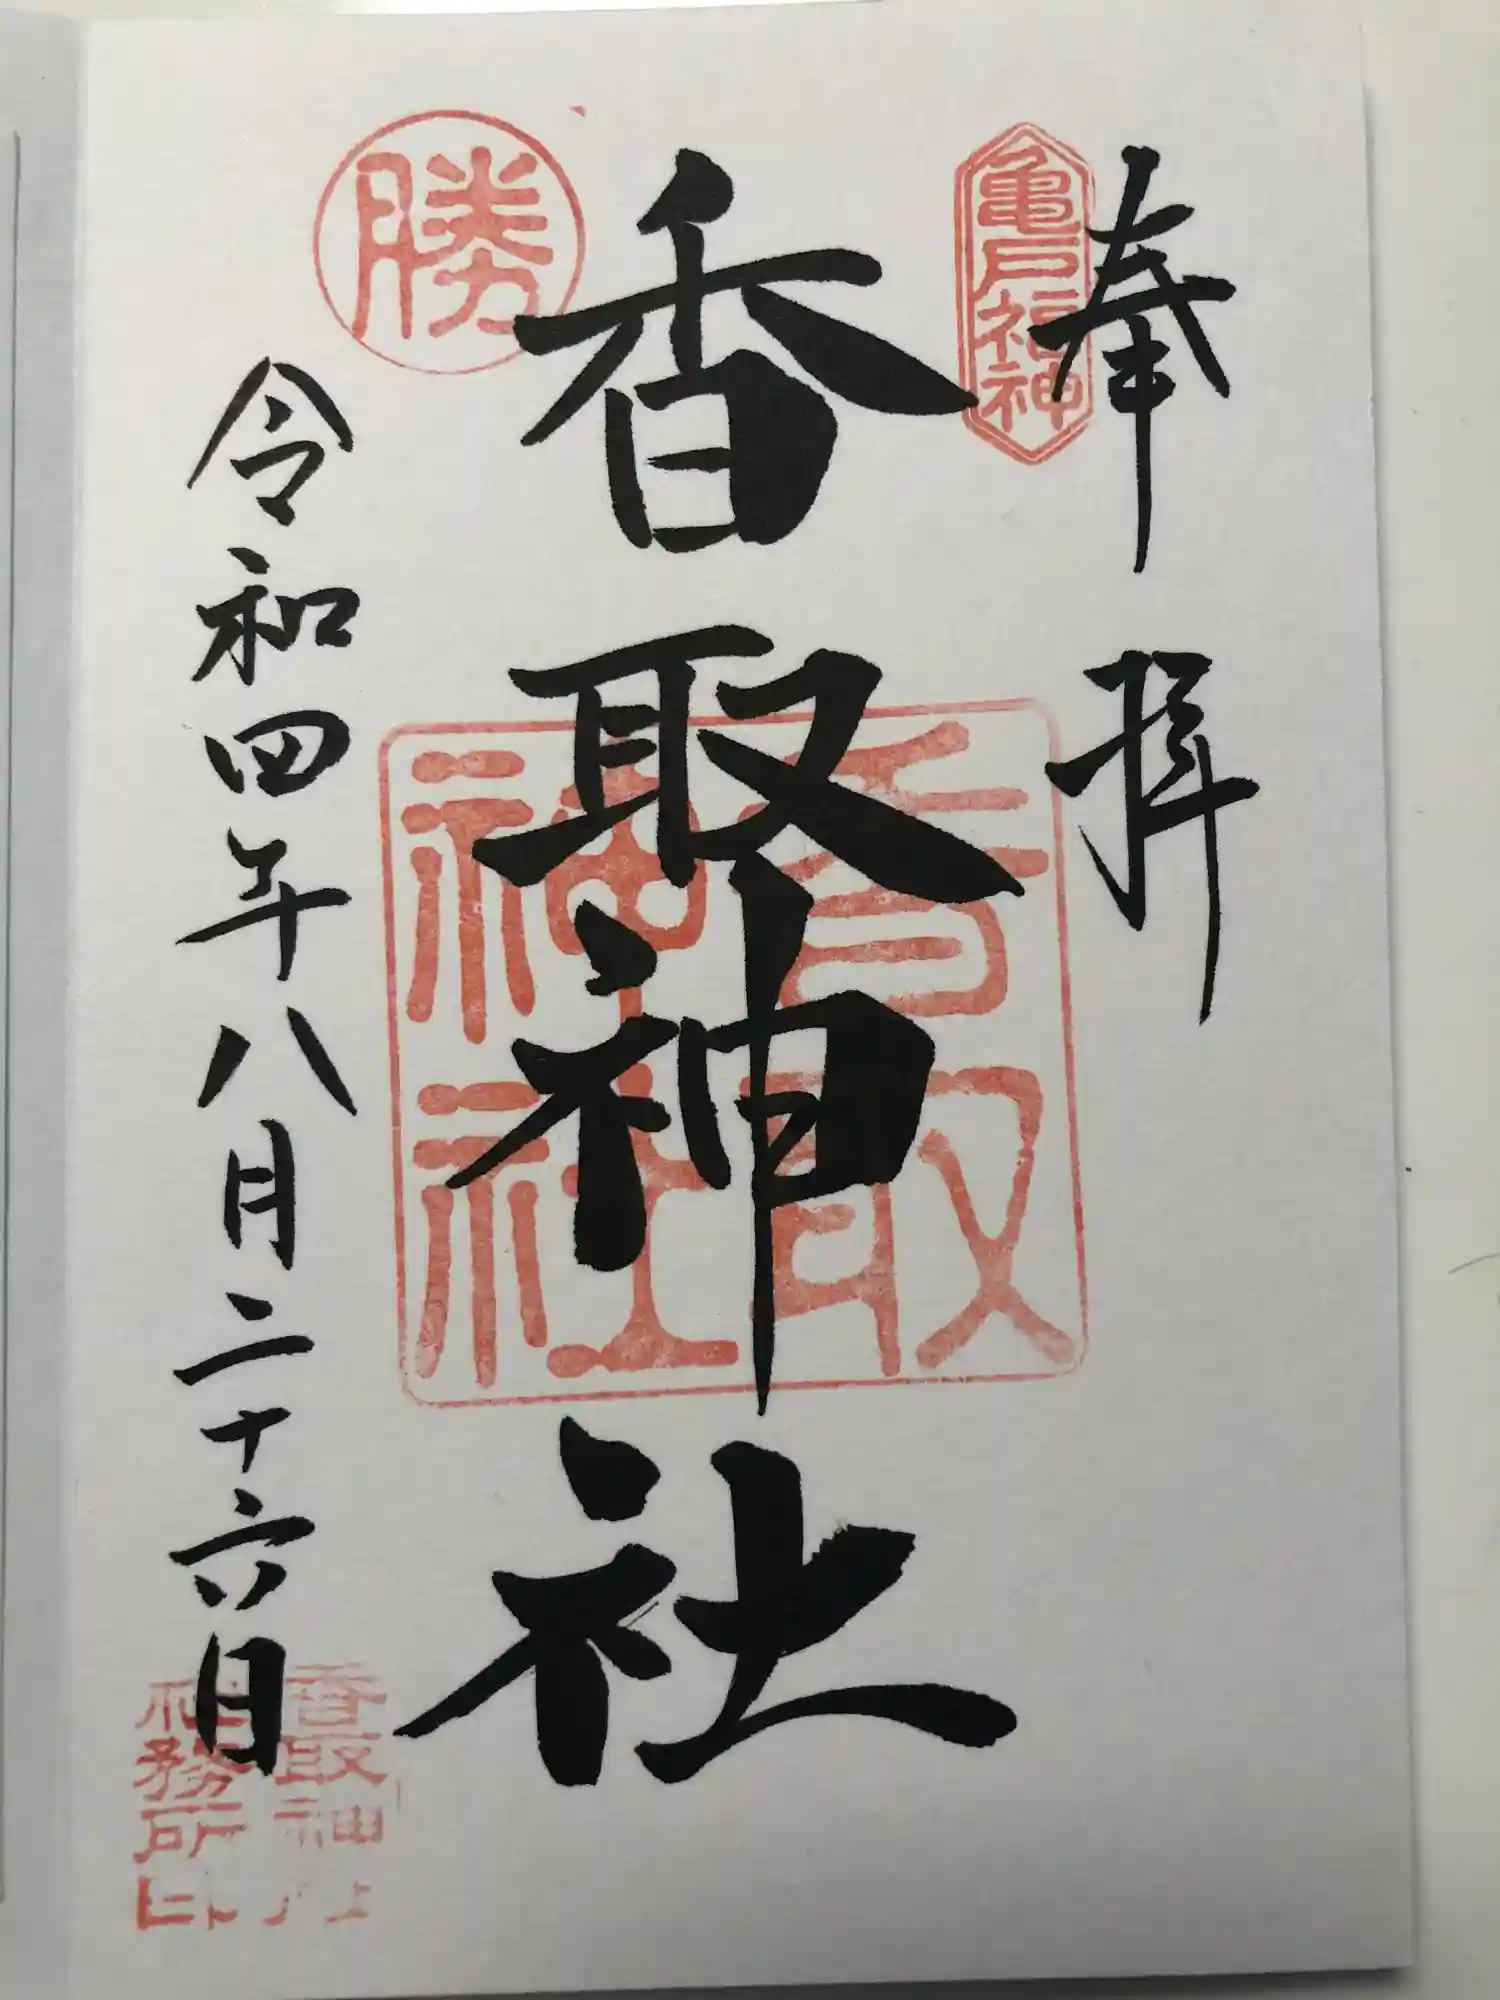 奉拝
亀戸福神
香取神社
香取神社
勝
令和四年八月二十六日
香取神社
社務所印